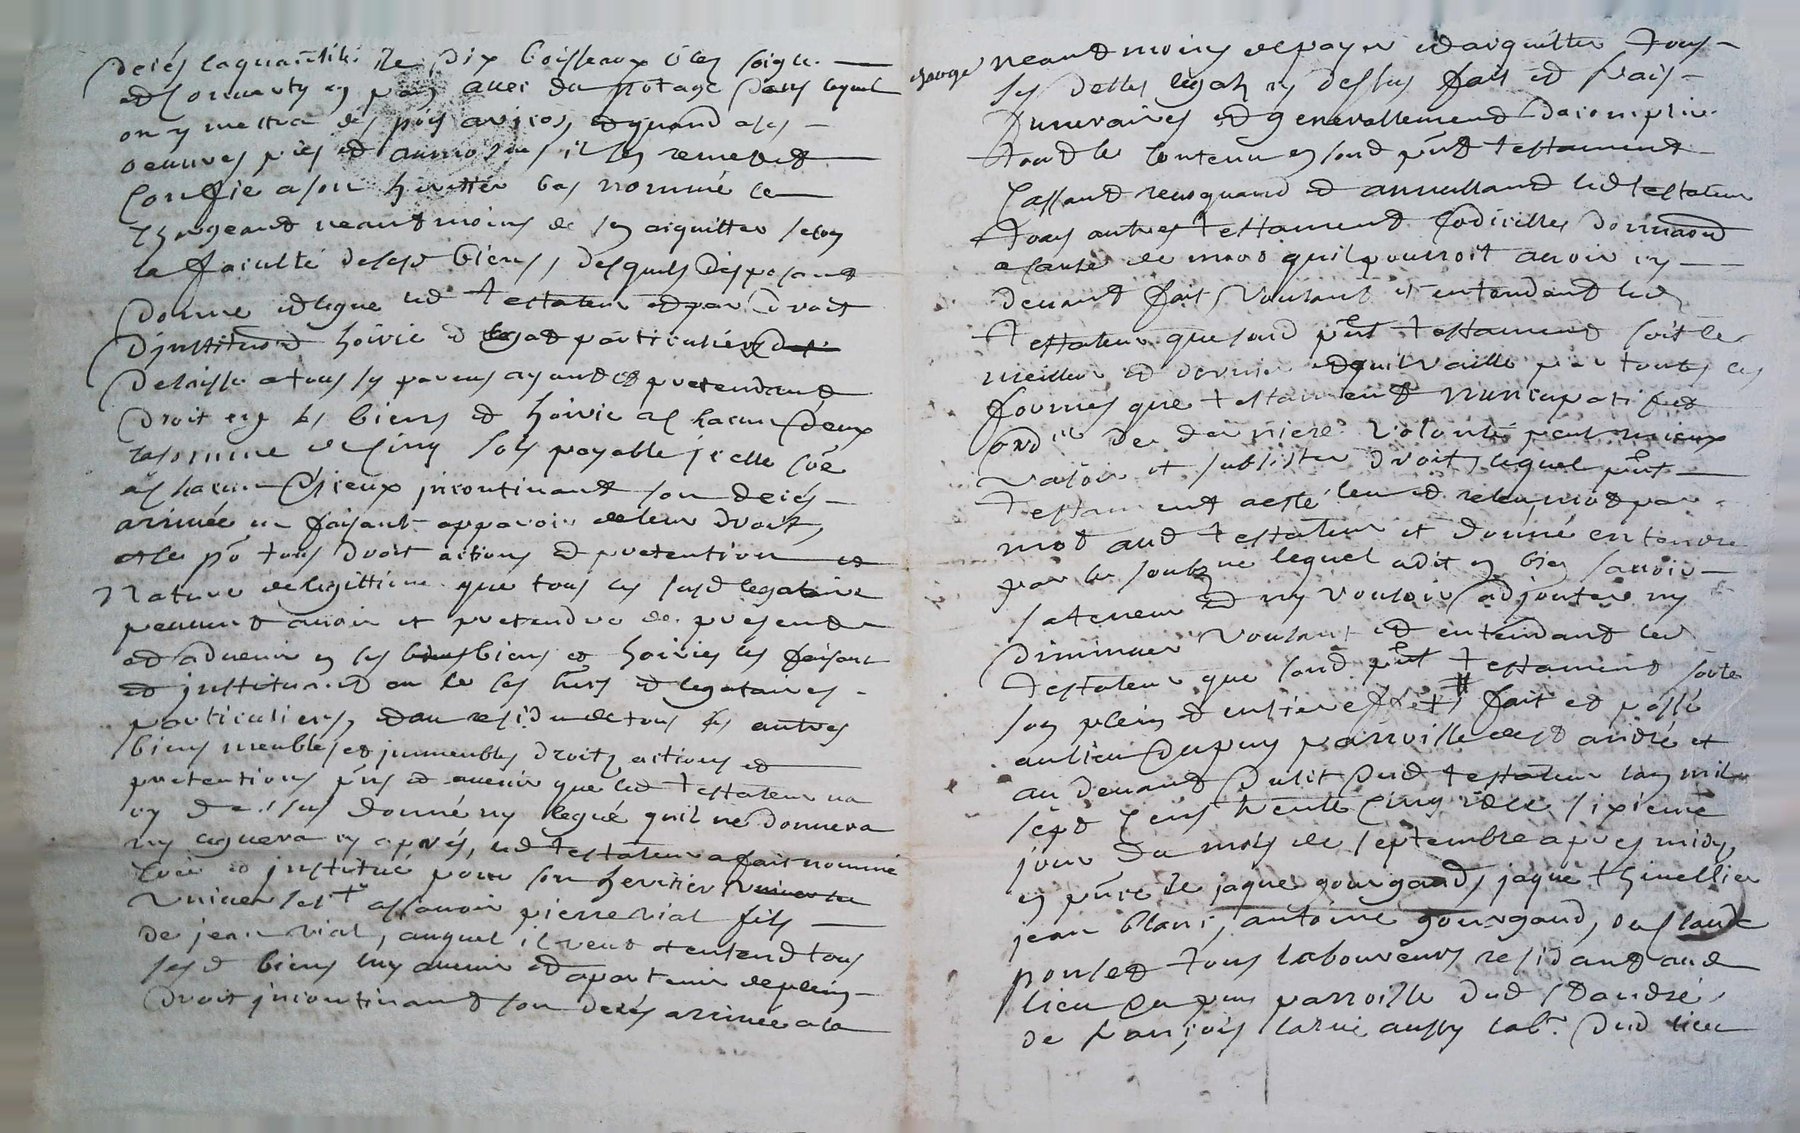 decés la quantité de dix boisseaux bled soigle
et convertis en pain avec du potage dans lequel
on y mettra des pois avicos, et quand a ses
oeuvres pies et aumosnes il s'en remet et
confie a son heritier bas nommé le
chargeant neantmoins de s'en aiquitter selon
la faculté desesd biens, desquels disposant
donne et legue led testateur et par droit
d'institution hoirie et legat particuliers
delaisse a tous ses parens ayant et pretendant
droit en ses biens et hoirie a chacun d'eux
la somme de cinq sols payable jcelle
a chacun d'jceux jncontinant son decés
arrivée en faisant apparoir de leur droit,
et le po tous droit actions et pretention et
nature de legittime que tous les susd legataires
peuvent avoir et pretendre de present
et advenir en ses biens et hoiries les faisant
et jnstituant en ce ses hers et legataires
particuliers, et au residu de tous ses autres
biens meubles et jmmeubles droits actions et
pretentions pnts et avenir que led testateur na
cy dessus donné ny legué qu'il ne donnera
ny leguera cy aprés, led testateur a fait nommé
creé et jnstitué pour son heritier
universel assavoir pierre vial fils
de jean vial, auquel il veut et entend tous
sesd biens luy avenir et apartenir de plein
droit jncontinant son decés arrivée a la
charge neantmoins de payer et aiquitter tous
ses dettes legatz cy dessus fait et frais
funeraires et generallement d'acomplir
tout le contenu en sond pnt testament
cassant revoquand et annullant led testateur
tous autres testament codicilles donnaon
a cause de mort qu'il pourroit avoir cy
devant fait voulant et entendant led
testateur que sond pnt testament soit le
meilleur et dernier et qu'il vaille par toutes les
formes que testament nuncupatif et
ord.re de derniere volonté peut mieux
valoir et subsister de droit, lequel pnt
testament a esté leu et releu mot par
mot aud testateur et donné entendre
par le soubz.ne lequel a dit en bien savoir
sa teneur et ny vouloir adjouter ny
diminuer voulant et entendant led
testateur que sond pnt testament sorte
son plein et entier effet, fait et passé
au lieu Dupuy parroisse de st andré et
au devant du lit dud testateur l'an mil
sept cens trente cinq et le sixieme
jour du mois de septembre apres midy,
en pnce de jaque gourgaud, jaque thivellier
jean blanc, antoine gourgaud, de claude
poulet tous laboureurs residant aud
lieu du puy parroisse dud st andré,
de françois larue aussy lab.r dud lieu